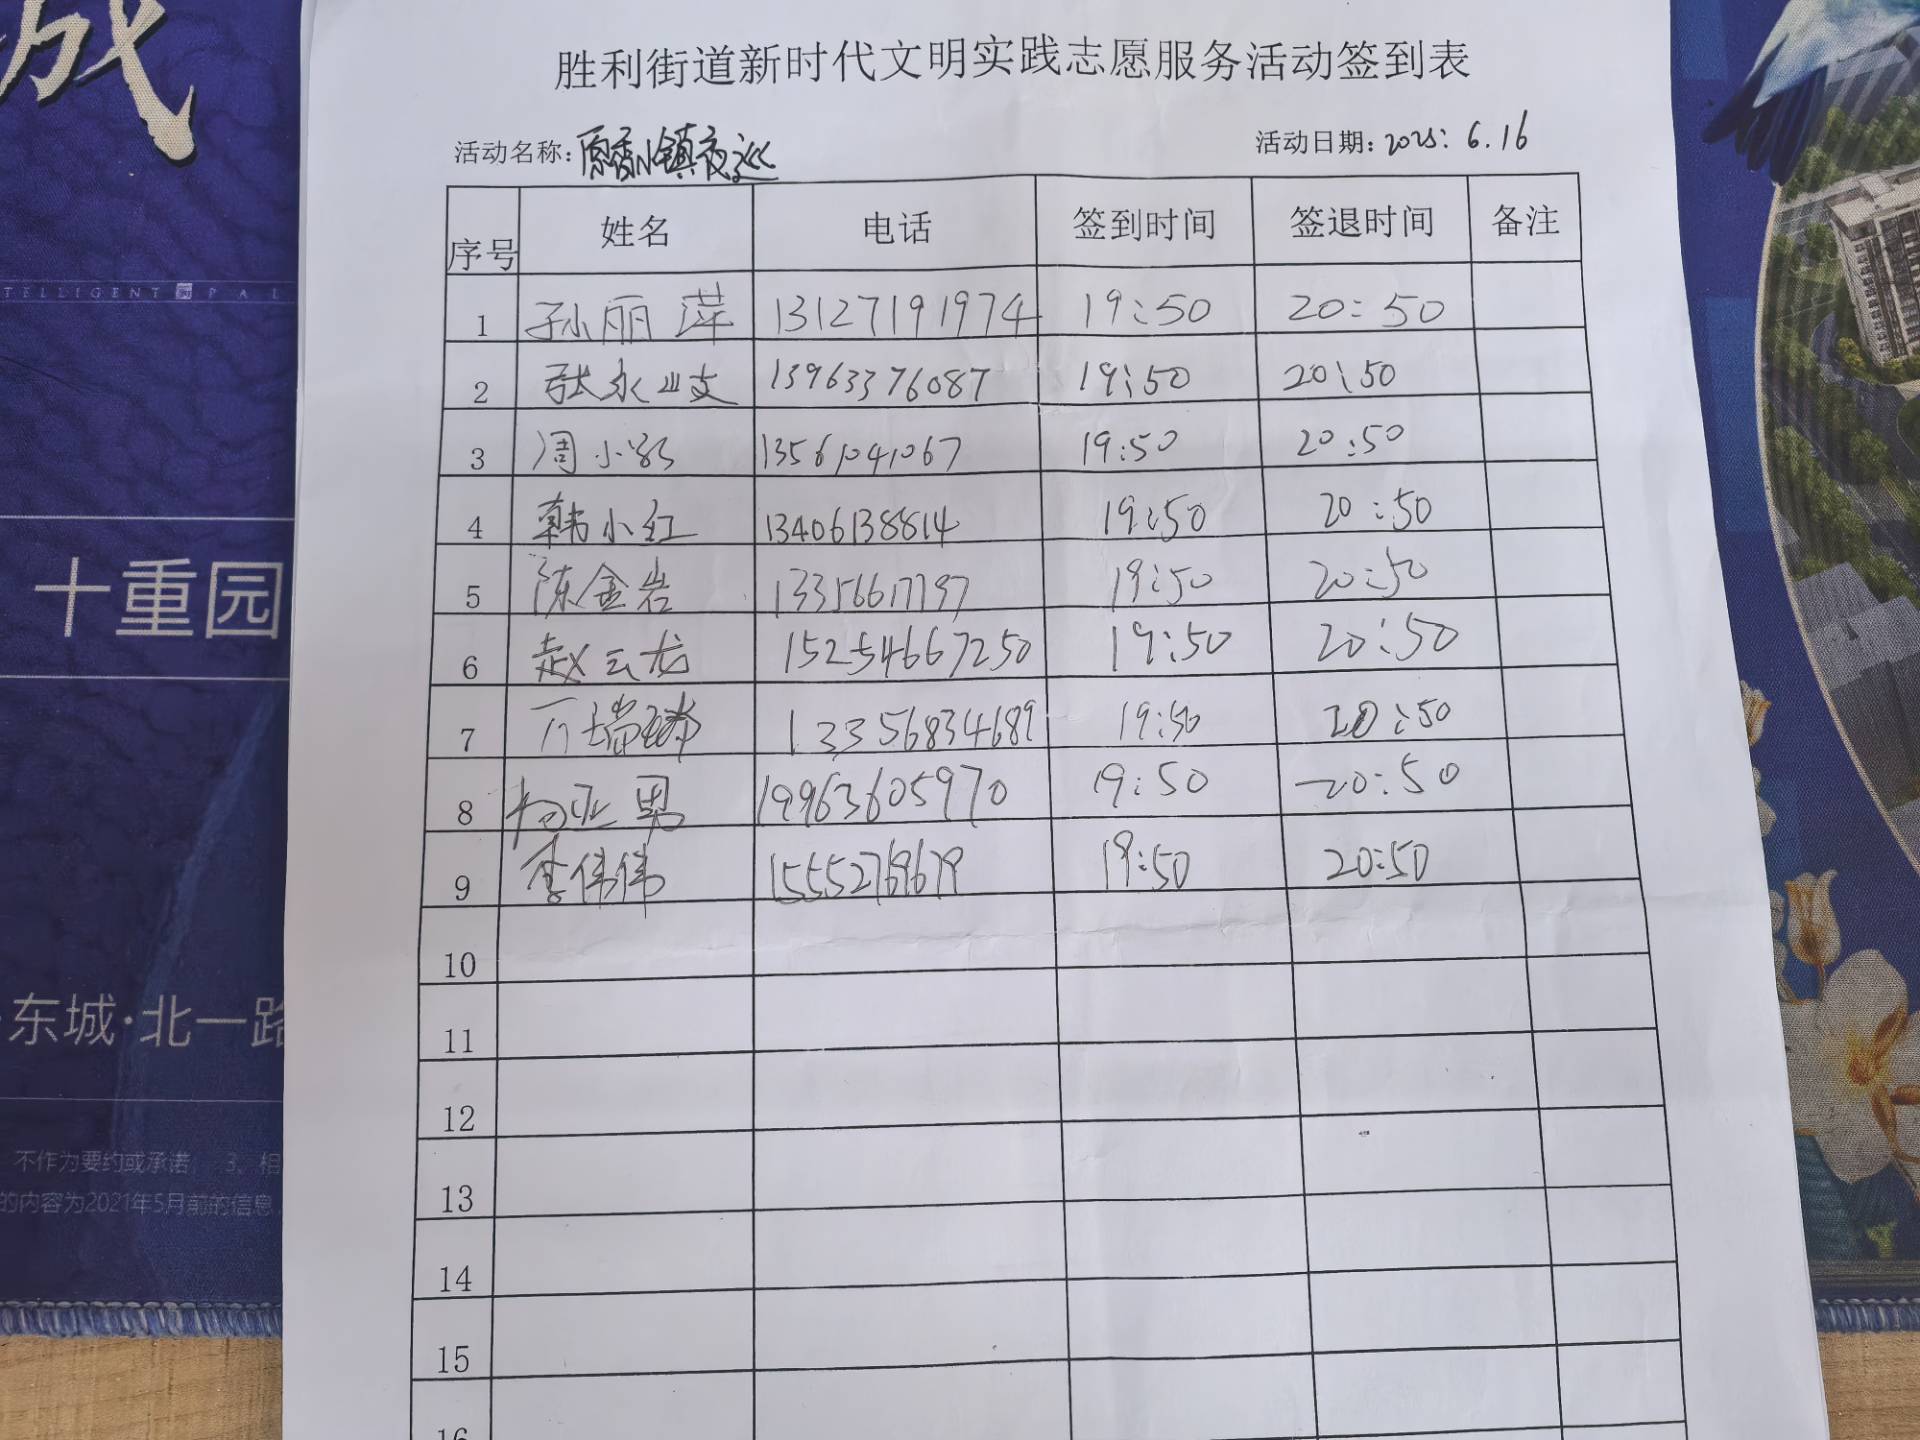 城
TELLIGENT PAL
十重园
·东城·北一路
不作为要约或承诺; 3、相
的内容为2021年5月前的信息,
胜利街道新时代文明实践志愿服务活动签到表
活动名称: 原香小镇夜巡 活动日期: 2025: 6.16
序号 姓名 电话 签到时间 签退时间 备注
1 孙丽萍 13127191974 19:50 20:50
2 张永 13963376087 19:50 20:50
3 周小 13561041067 19:50 20:50
4 韩小红 13406138814 19:50 20:50
5 陈金岩 13356617797 19:50 20:50
6 赵云龙 15254667250 19:50 20:50
7 瑞 13356834689 19:50 20:50
8 杨亚男 19963605970 19:50 20:50
9 李伟伟 15552769679 19:50 20:50
10
11
12
13
14
15
16